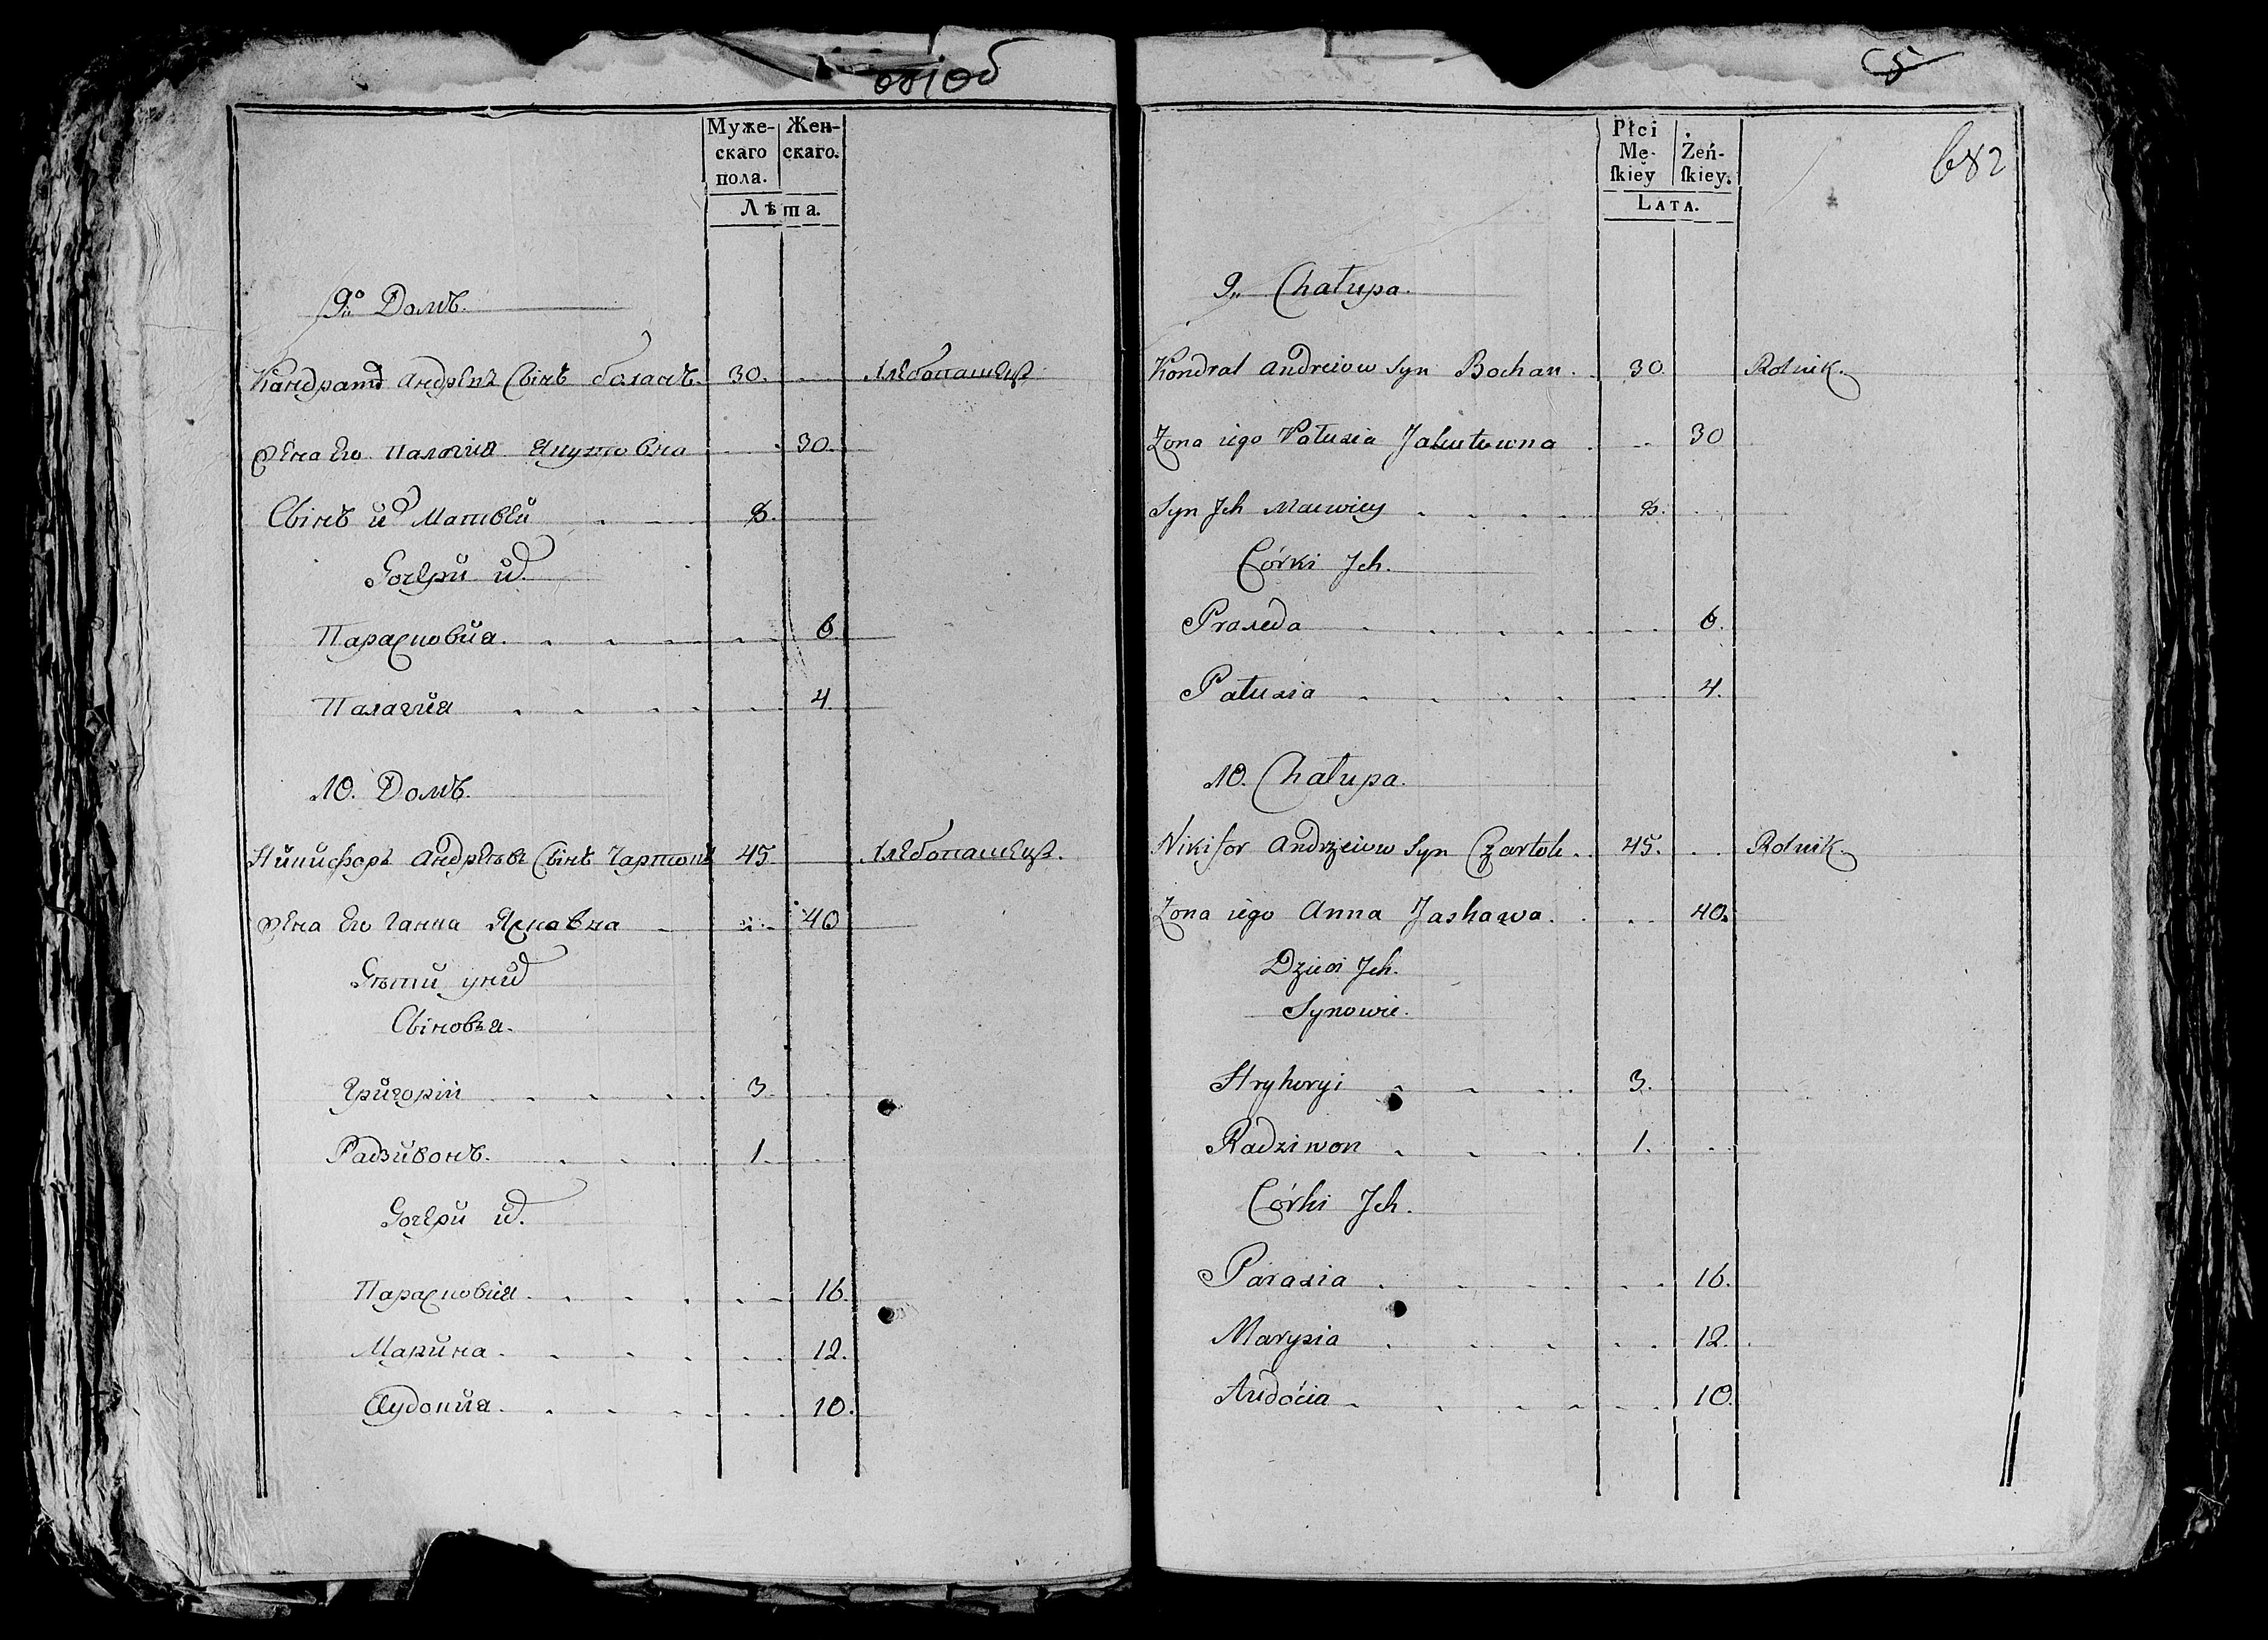 Муже-
скаго
пола.
Жен-
скаго.
Лѣта.
9º Домъ.
Кандратъ Андреевъ Сынъ Боханъ. 30. Хлебопашецъ
Жена Его Палагия Якутовна 30.
Сынъ их Матвей 8.
Дочери их.
Парасковия 6
Палагия 4.
10. Домъ.
Никифоръ Андреевъ Сынъ Чартокъ 45. Хлебопашецъ.
Жена Его Ганна Ясковна 40
Дѣти у них
Сыновья.
Григорий 3.
Радзивонъ. 1.
Дочери их.
Парасковия 16.
Марина 12.
Аудокия 10.
5
682
Płci
Mę-
ſkiey
Żeń-
ſkiey.
LATA.
9,, Chałupa.
Kondrat Andreiow Syn Bochan. 30. Rolnik.
Żona iego Pałusia Jakutowna 30
Syn Jch Maćwiey 8.
Córki Jch.
Praxeda 6.
Pałusia 4.
10. Chałupa.
Nikifor Andrzeiow Syn Czartok. 45. Rolnik.
Żona iego Anna Jaskowa. 40.
Dzieci Jch.
Synowie.
Hryhoryi 3.
Radziwon 1.
Córki Jch.
Parasia 16.
Marysia 12.
Audocia 10.